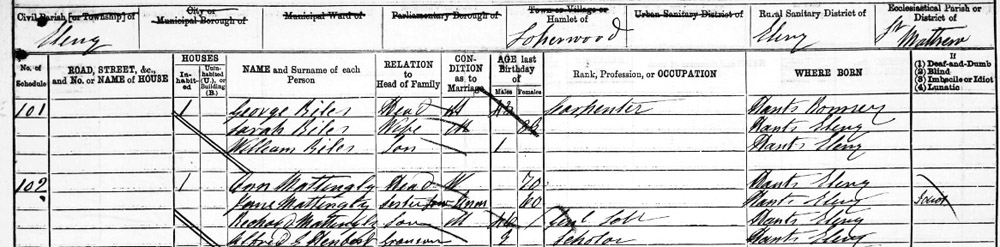 Civil Parish [or Township] of
City or Municipal Borough of
Municipal Ward of
Parliamentary Borough of
Town or Village or Hamlet of
Urban Sanitary District of
Rural Sanitary District of
Ecclesiastical Parish or District of
Eling Eling St Mathew
No. of Schedule
ROAD, STREET, &c., and No. or NAME of HOUSE
HOUSES
In-habit-ed
Unin-habited (U.), or Building (B.)
NAME and Surname of each Person
RELATION to Head of Family
CON-DITION as to Marriage
AGE last Birthday of
Males Females
Rank, Profession, or OCCUPATION
WHERE BORN
If
(1) Deaf-and-Dumb
(2) Blind
(3) Imbecile or Idiot
(4) Lunatic
101 1 George Biles Head M Carpenter Hants Romsey
Sarah Biles Wife M Hants Eling
William Biles Son 1 Hants Eling
102 1 Ann Mattingly Head W 70 Hants Eling
Jane Mattingly Sister 60 Hants Eling Idiot
Richard Mattingly Son Hants Eling
Alfred G Grandson 9 Scholar Hants Eling